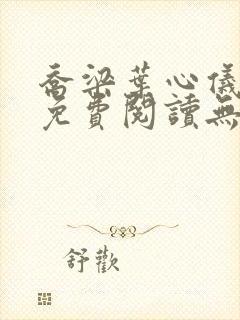 喬梁葉心儀
免費閱讀無
舒歡